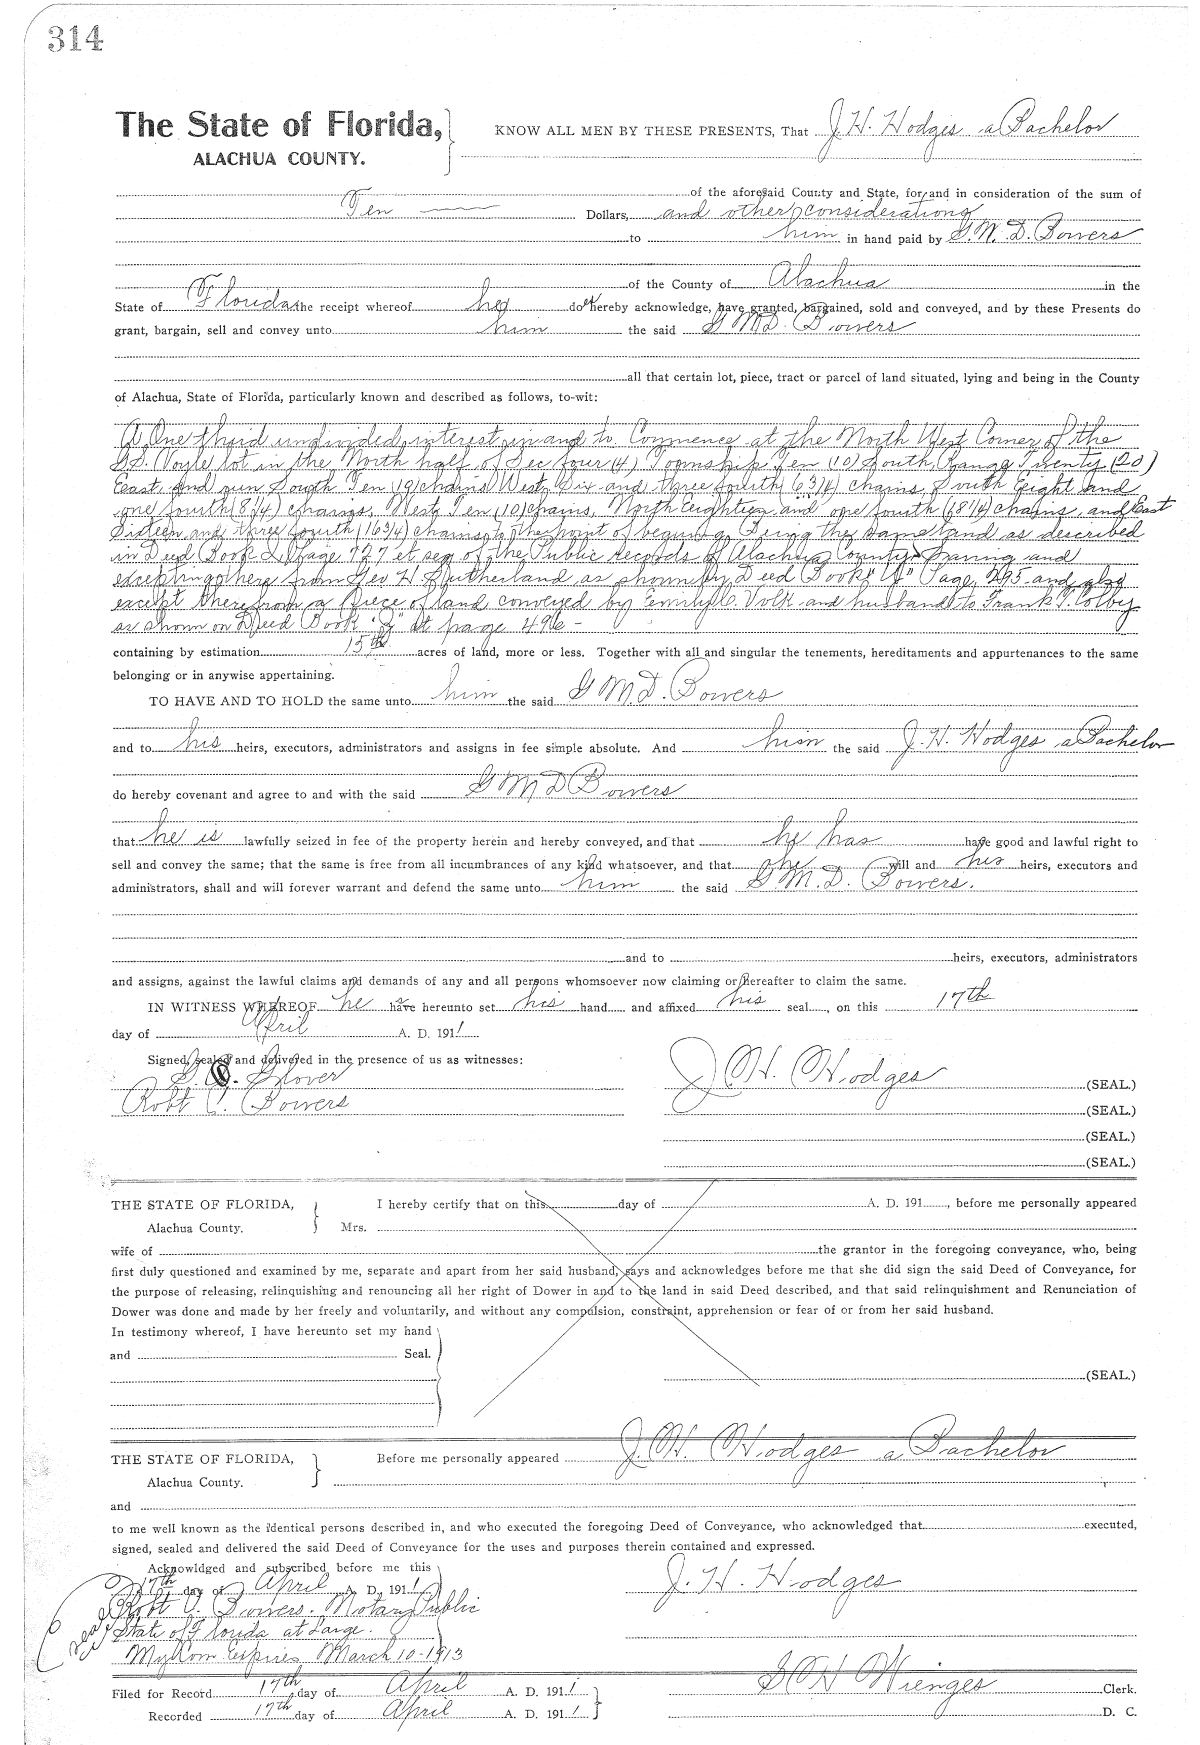 314
The State of Florida, KNOW ALL MEN BY THESE PRESENTS, That J. H. Hodges a Bachelor
ALACHUA COUNTY.
of the aforesaid County and State, for and in consideration of the sum of
Ten Dollars, and other considerations
to him in hand paid by G. M. D. Bowers
of the County of Alachua in the
State of Florida the receipt whereof he do hereby acknowledge, have granted, bargained, sold and conveyed, and by these Presents do
grant, bargain, sell and convey unto him the said G M D. Bowers
all that certain lot, piece, tract or parcel of land situated, lying and being in the County
of Alachua, State of Florida, particularly known and described as follows, to-wit:
A One third undivided interest in and to Commence at the North West Corner of the
Voyle lot in the North half of Sec four (4) Township Ten (10) South Range Twenty (20)
East, and run South Ten (10) chains West Six and three fourth (6 3/4) chains, South Eight and
one fourth (8 1/4) chains, West Ten (10) chains, North Eighteen and one fourth (18 1/4) chains, and East
Sixteen and three fourth (16 3/4) chains to the point of begining Being the same land as described
in Deed Book Page 727 et seq of the Public records of Alachua County Saving and
excepting there from Geo H Sutherland as shown by Deed Book Page 295 and also
except therefrom a Piece of land conveyed by Emily C. Volk and husband to Frank T. Colby
as shown on Deed Book at page 496 -
containing by estimation 15th acres of land, more or less. Together with all and singular the tenements, hereditaments and appurtenances to the same
belonging or in anywise appertaining.
TO HAVE AND TO HOLD the same unto him the said G M. D. Bowers
and to his heirs, executors, administrators and assigns in fee simple absolute. And him the said J. H. Hodges a Bachelor
do hereby covenant and agree to and with the said G M D Bowers
that he is lawfully seized in fee of the property herein and hereby conveyed, and that he has have good and lawful right to
sell and convey the same; that the same is free from all incumbrances of any kind whatsoever, and that he will and his heirs, executors and
administrators, shall and will forever warrant and defend the same unto him the said G. M. D. Bowers.
and to heirs, executors, administrators
and assigns, against the lawful claims and demands of any and all persons whomsoever now claiming or hereafter to claim the same.
IN WITNESS WHEREOF he have hereunto set his hand and affixed his seal, on this 17th
day of April A. D. 1911
Signed, sealed and delivered in the presence of us as witnesses:
Glover J. H. Hodges (SEAL.)
Robt C. Bowers (SEAL.)
(SEAL.)
(SEAL.)
THE STATE OF FLORIDA, I hereby certify that on this day of A. D. 191 , before me personally appeared
Alachua County. Mrs.
wife of the grantor in the foregoing conveyance, who, being
first duly questioned and examined by me, separate and apart from her said husband, says and acknowledges before me that she did sign the said Deed of Conveyance, for
the purpose of releasing, relinquishing and renouncing all her right of Dower in and to the land in said Deed described, and that said relinquishment and Renunciation of
Dower was done and made by her freely and voluntarily, and without any compulsion, constraint, apprehension or fear of or from her said husband.
In testimony whereof, I have hereunto set my hand
and Seal.
(SEAL.)
THE STATE OF FLORIDA, Before me personally appeared J. H. Hodges a Bachelor
Alachua County.
and
to me well known as the identical persons described in, and who executed the foregoing Deed of Conveyance, who acknowledged that executed,
signed, sealed and delivered the said Deed of Conveyance for the uses and purposes therein contained and expressed.
Acknowldged and subscribed before me this
17th day of April A. D. 1911 J. H. Hodges
Robt C. Bowers. Notary Public
State of Florida at Large.
My Com Expires March 10-1913
Filed for Record 17th day of April A. D. 1911 S H Wienges Clerk.
Recorded 17th day of April A. D. 1911 D. C.